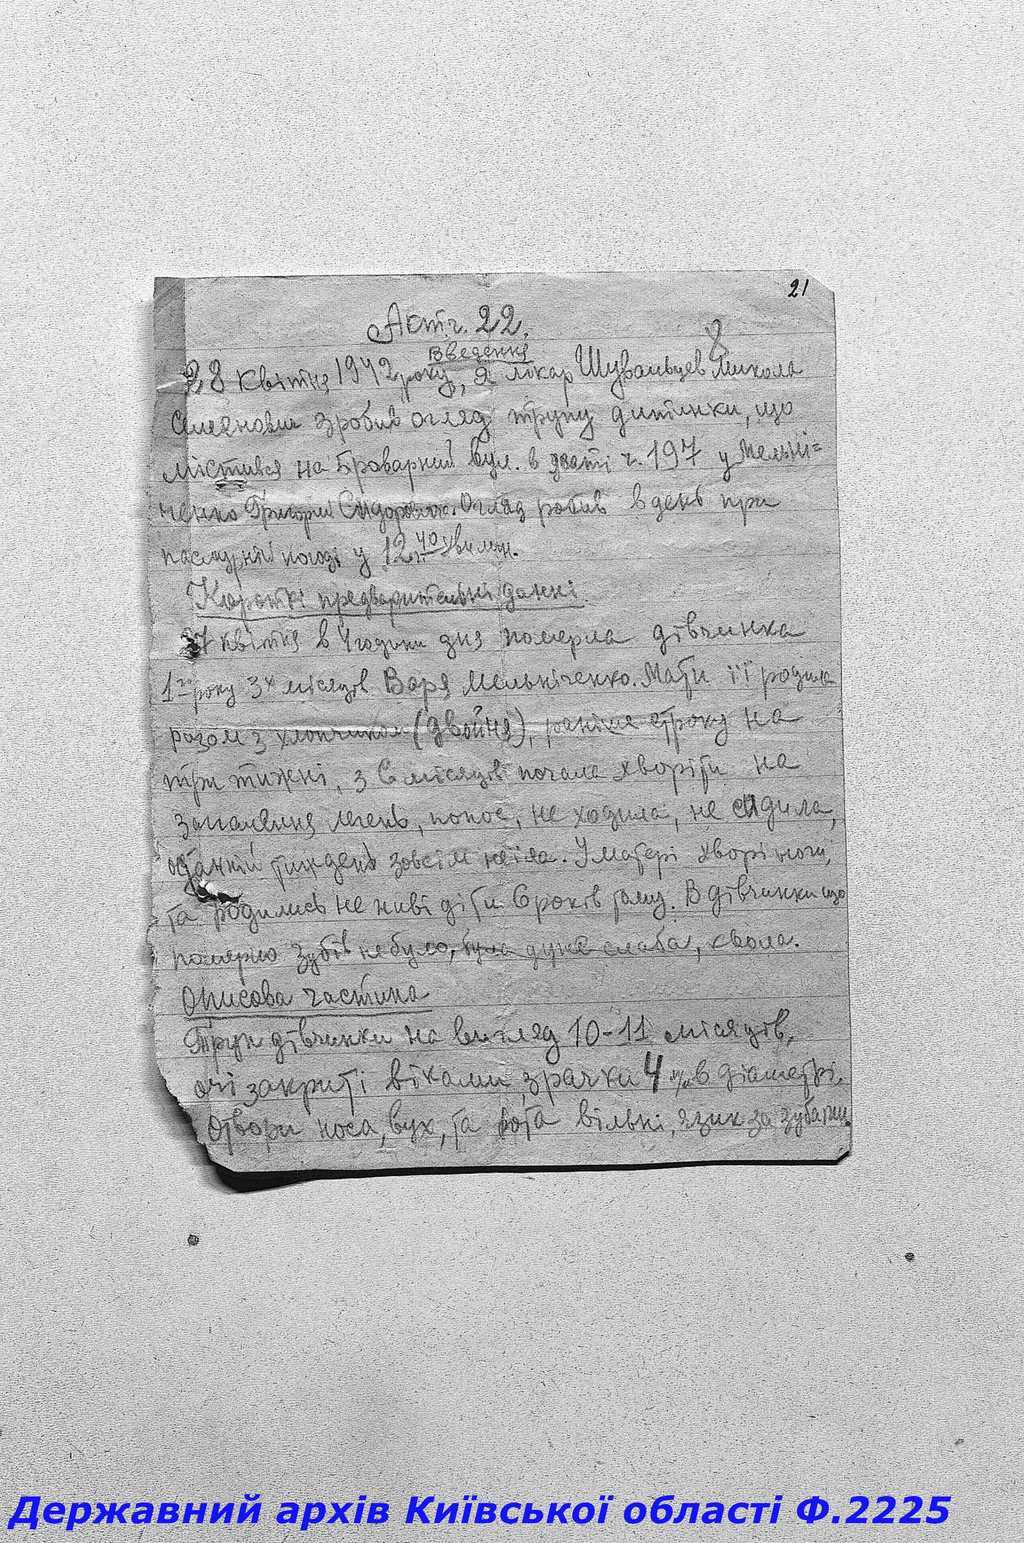 21
Акт ч. 22.
8
Введення
28 квітня 1942 року, Я лікар Шувальцев Микола
Семенович зробив огляд трупу дитинки, що
містився на Броварний вул. в хаті ч. 197 у Мельні=
ченко Григорій Сидорович. Огляд робив в день при
пасмурній погоді у 12 г. 40 хвилин.
Короткі предварительні данні.
27 квітня в 4 години дня померла дівчинка
1го року 3х місяців Варя Мельніченко. Мати її родила
разом з хлопчиком (двойня), раніше строку на
три тижні, з 6 місяців почала хворіти на
запалення легень, понос, не ходила, не сиділа,
останній тиждень зовсім не їла. У матері хворі ноги,
та родились не живі діти 6 років тому. В дівчинки що
померла зубів не було, була дуже слаба, квола.
Описова частина
Труп дівчинки на вигляд 10-11 місяців,
очі закриті віками, зрачки 4 м/м в діаметрі.
Отвори носа, вух, та рота вільні, язик за зубами.
Державний архів Київської області Ф.2225